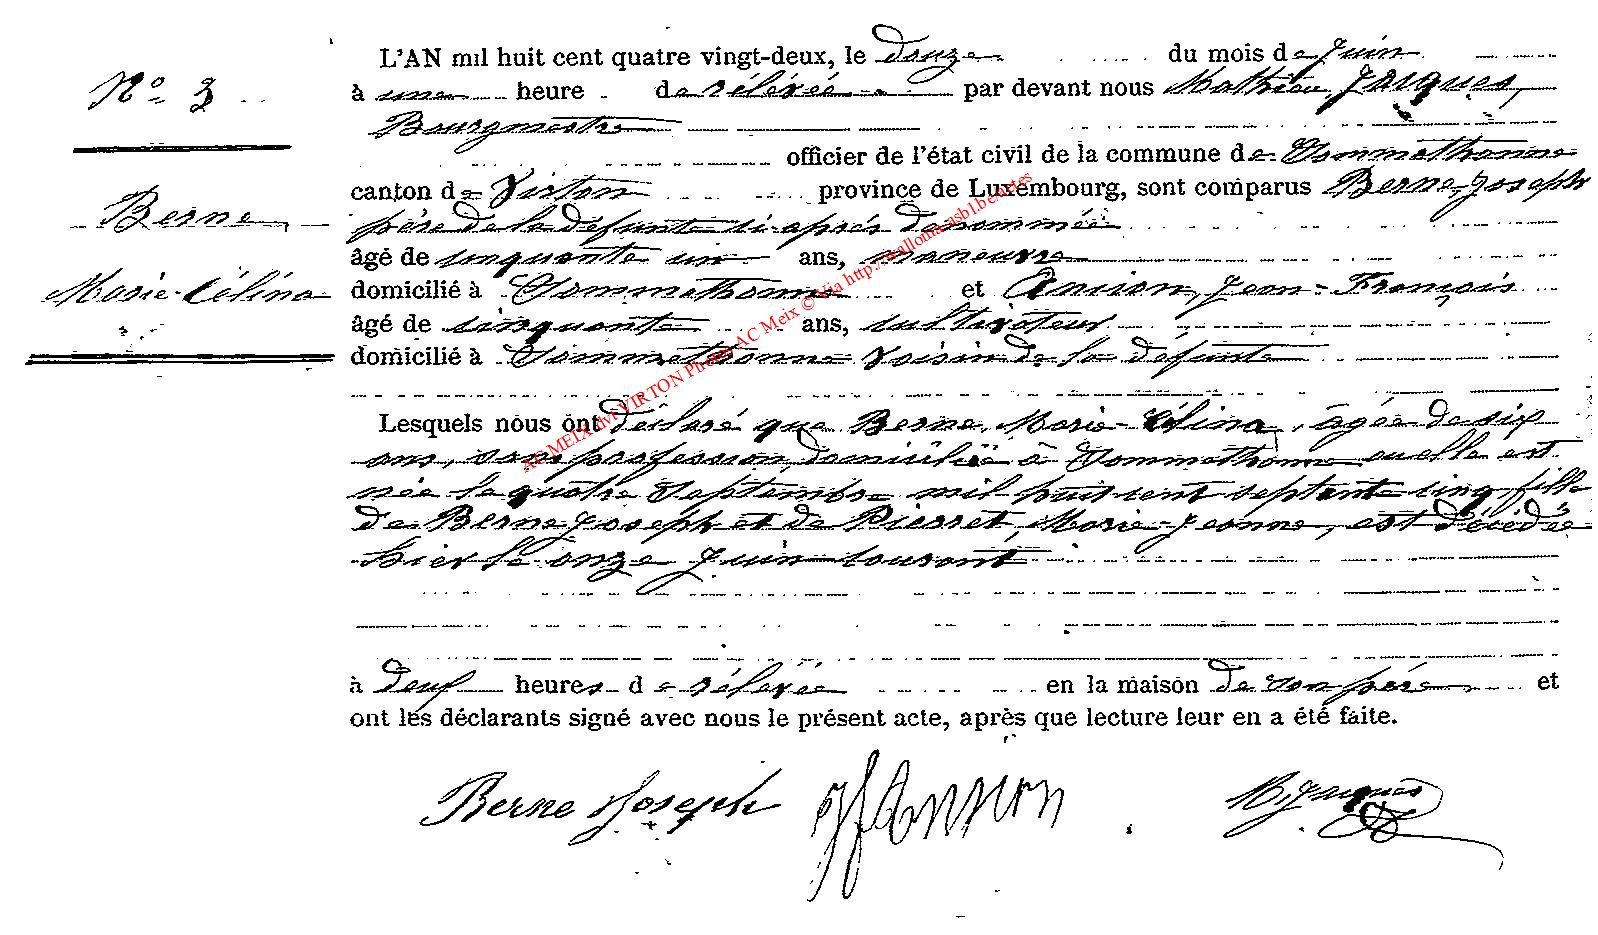 L'AN mil huit cent quatre vingt-deux, le douze du mois de Juin
N° 3
à une heure de rélévée par devant nous Mathieu, Jacques,
Bourgmestre
officier de l'état civil de la commune de Sommethonne
canton de Virton province de Luxembourg, sont comparus Berne, Joseph
Berne
père de la défunte ci-après dénommée
âgé de cinquante un ans, manœuvre
Marie-Célina
domicilié à Sommethonne et Ancion, Jean-François
âgé de cinquante ans, cultivateur
domicilié à Sommethonne voisin de la défunte
Lesquels nous ont déclaré que Berne, Marie-Célina, âgée de six
ans, sans profession, domiciliée à Sommethonne ou elle est
née le quatre Septembre mil huit cent septante cinq, fille
de Berne Joseph et de Pierret, Marie-Jeanne, est décédée
hier le onze Juin courant
à deux heures de rélévée en la maison de son père et
ont les déclarants signé avec nous le présent acte, après que lecture leur en a été faite.
Berne Joseph JfAncion M. Jacques
AC MEIX dvt VIRTON Photo AC Meix © Via http://wallonia-asbl.be/actes